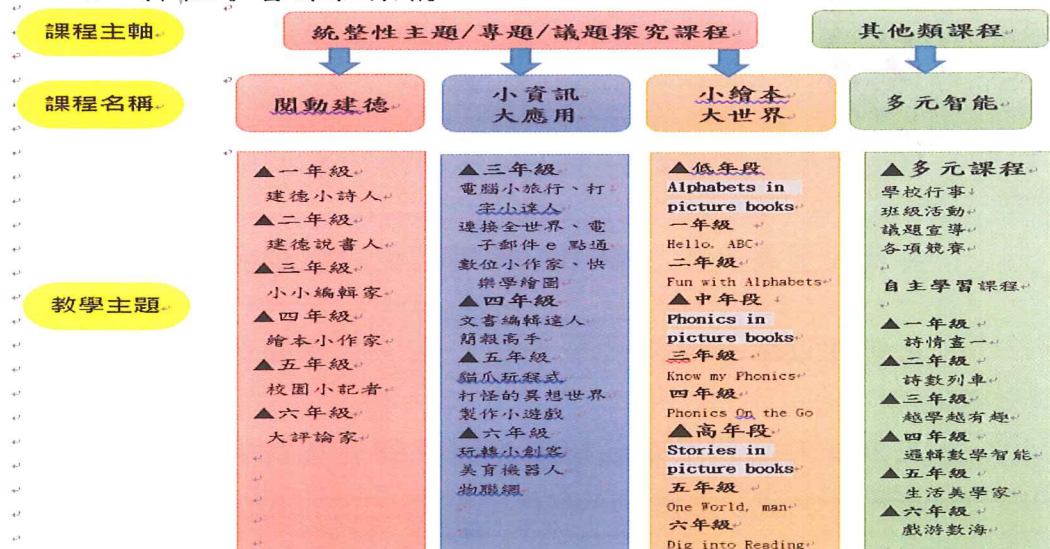 課程主軸
統整性主題/專題/議題探究課程
其他類課程
課程名稱
閱動建德
小資訊
大應用
小繪本
大世界
多元智能
教學主題
▲一年級
建德小詩人
▲二年級
建德說書人
▲三年級
小小編輯家
▲四年級
繪本小作家
▲五年級
校園小記者
▲六年級
大評論家
▲三年級
電腦小旅行、打
字小達人
連接全世界、電
子郵件e點通
數位小作家、快
樂學繪圖
▲四年級
文書編輯達人
簡報高手
▲五年級
貓爪玩程式
打怪的異想世界
製作小遊戲
▲六年級
玩轉小創客
美育機器人
物聯網
▲低年段
Alphabets in
picture books
一年級
Hello, ABC
二年級
Fun with Alphabets
▲中年段
Phonics in
picture books
三年級
Know my Phonics
四年級
Phonics On the Go
▲高年段
Stories in
picture books
五年級
One World, man
六年級
Dig into Reading
▲多元課程
學校行事
班級活動
議題宣導
各項競賽
自主學習課程
▲一年級
詩情畫一
▲二年級
詩數列車
▲三年級
越學越有趣
▲四年級
邏輯數學智能
▲五年級
生活美學家
▲六年級
戲游數海